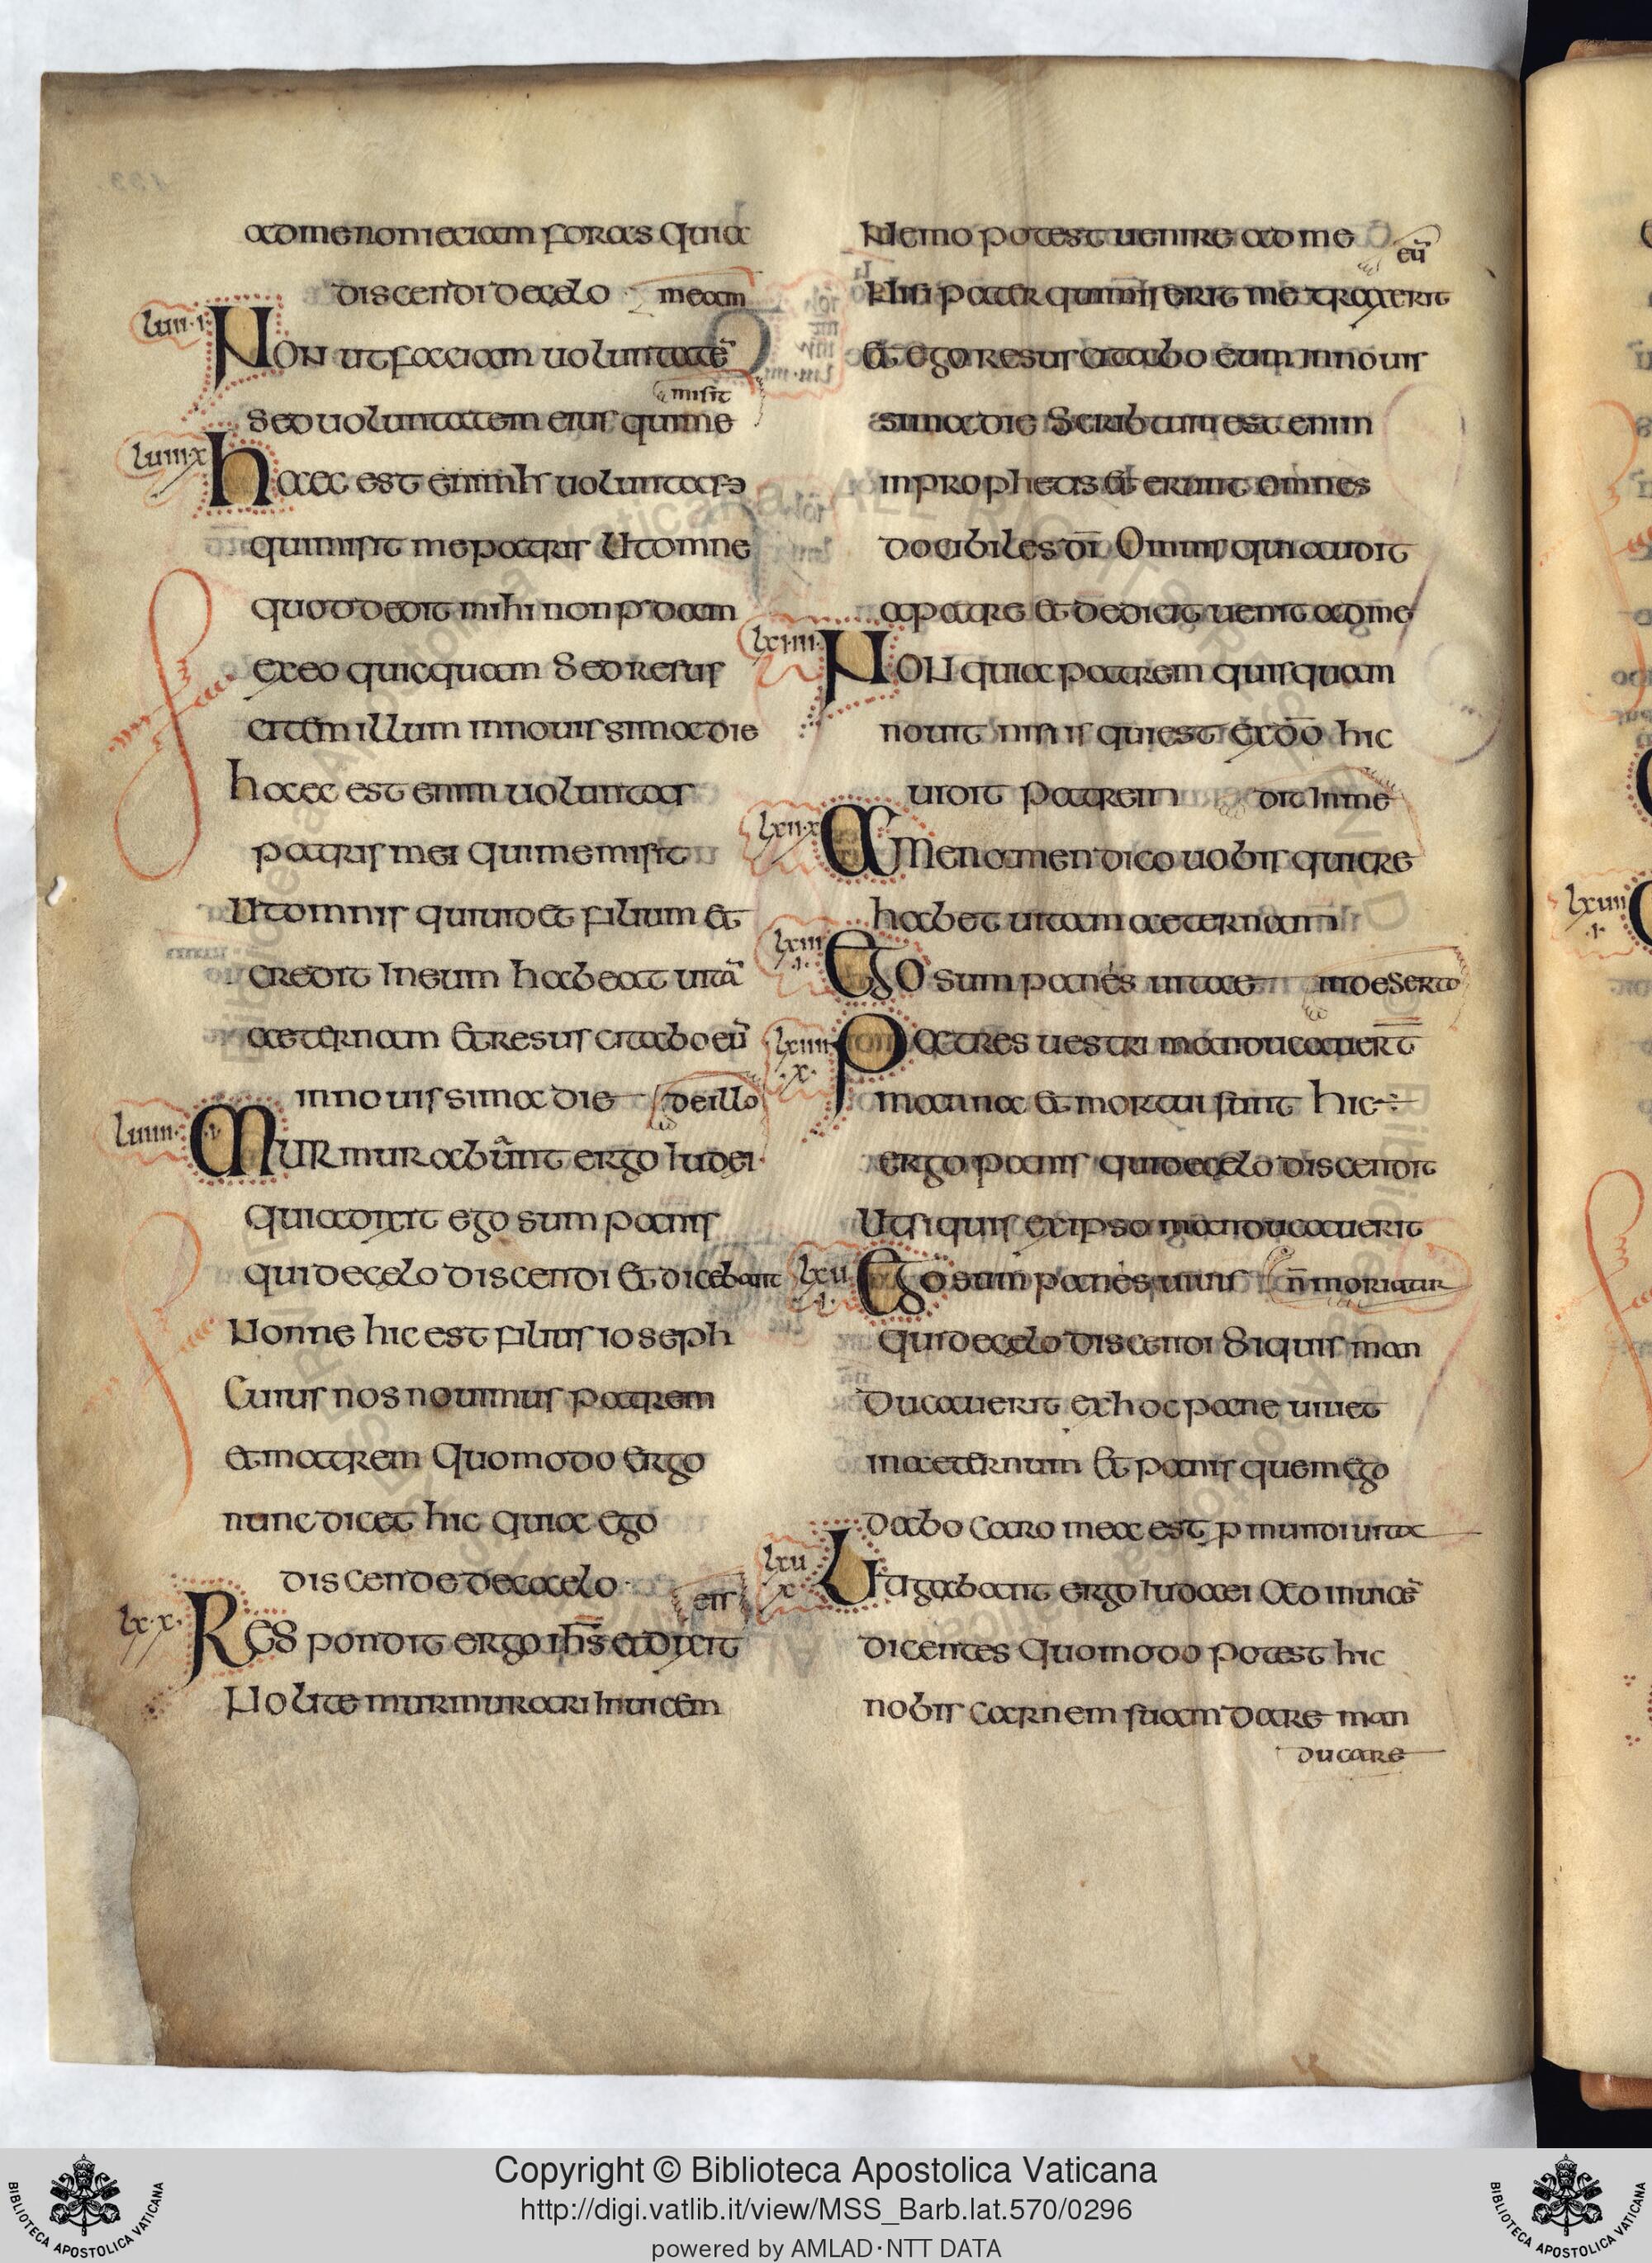 admenoneiciam foras Quia
discendi decęlo
meam
luii·i·
Non utfaciam uoluntatē
misit
Sed uoluntatem eius quime
luiii·x
haec est enim uoluntas
quimisit mepatris Utomne
quod dedit mihi non pdam
exeo quicquam Sed resus
citem illum innouissima die
haec est enim uoluntas
patris mei Quimemisit
Utomnis quiuidet filium et
credit Ineum habeat uitā
aeternam Etresuscitabo eū
innouissima die
deillo
luiiii· i
Murmurabūnt ergo Iudei·
Quiadixit ego sum panis
quidecęlo discendi Et dicebant
Nonne hic est filius ioseph
Cuius nos nouimus patrem
etmatrem Quomodo Ergo
nunc dicet hic Quia Ego
discende decaelo·
eis
lx·x·
Respondit ergo ihs̄ et dixit
Nolite murmurari Inuicem
Nemo potest uenire ad me
eū
Nisi pater quimisserit me traxerit
Et ego resuscitabo eum innouis
sima die Scribtum est enim
inprophetis Et erunt omnes
docibiles dī Omnis qui audit
apatre et dedicit uenit adme
lxiiii·
Non quia patrem quisquam
nouit nisi is quiest exdō hic
uidit patrem
dit Inme
lxii·x
Amen amen dico uobis quicre
habet uitam aeternam
lxiii
·i·
Ego sum panes uitae
indeserto
lxiiii
·x·
Patres uestri manducauert̄
manna et mortui sunt hic÷
ergo panis quidecęlo discendit
Utsiquis exipso manducauerit
lxu
·i·
Ego sum panes uiuis
n̄ moriatur
quidecęlo discendi Siquis man
ducauerit exhocpane uiuet
inaeternum Et panis quemego
dabo Caro mea est p mundi uita
lxu
x
Litigabant ergo Iudaei Ad inuicē
dicentes Quomodo potest hic
nobis Carnem suam dare man
ducare
Copyright © Biblioteca Apostolica Vaticana
http://digi.vatlib.it/view/MSS_Barb.lat.570/0296
powered by AMLAD·NTT DATA
BIBLIOTECA APOSTOLICA VATICANA
BIBLIOTECA APOSTOLICA VATICANA